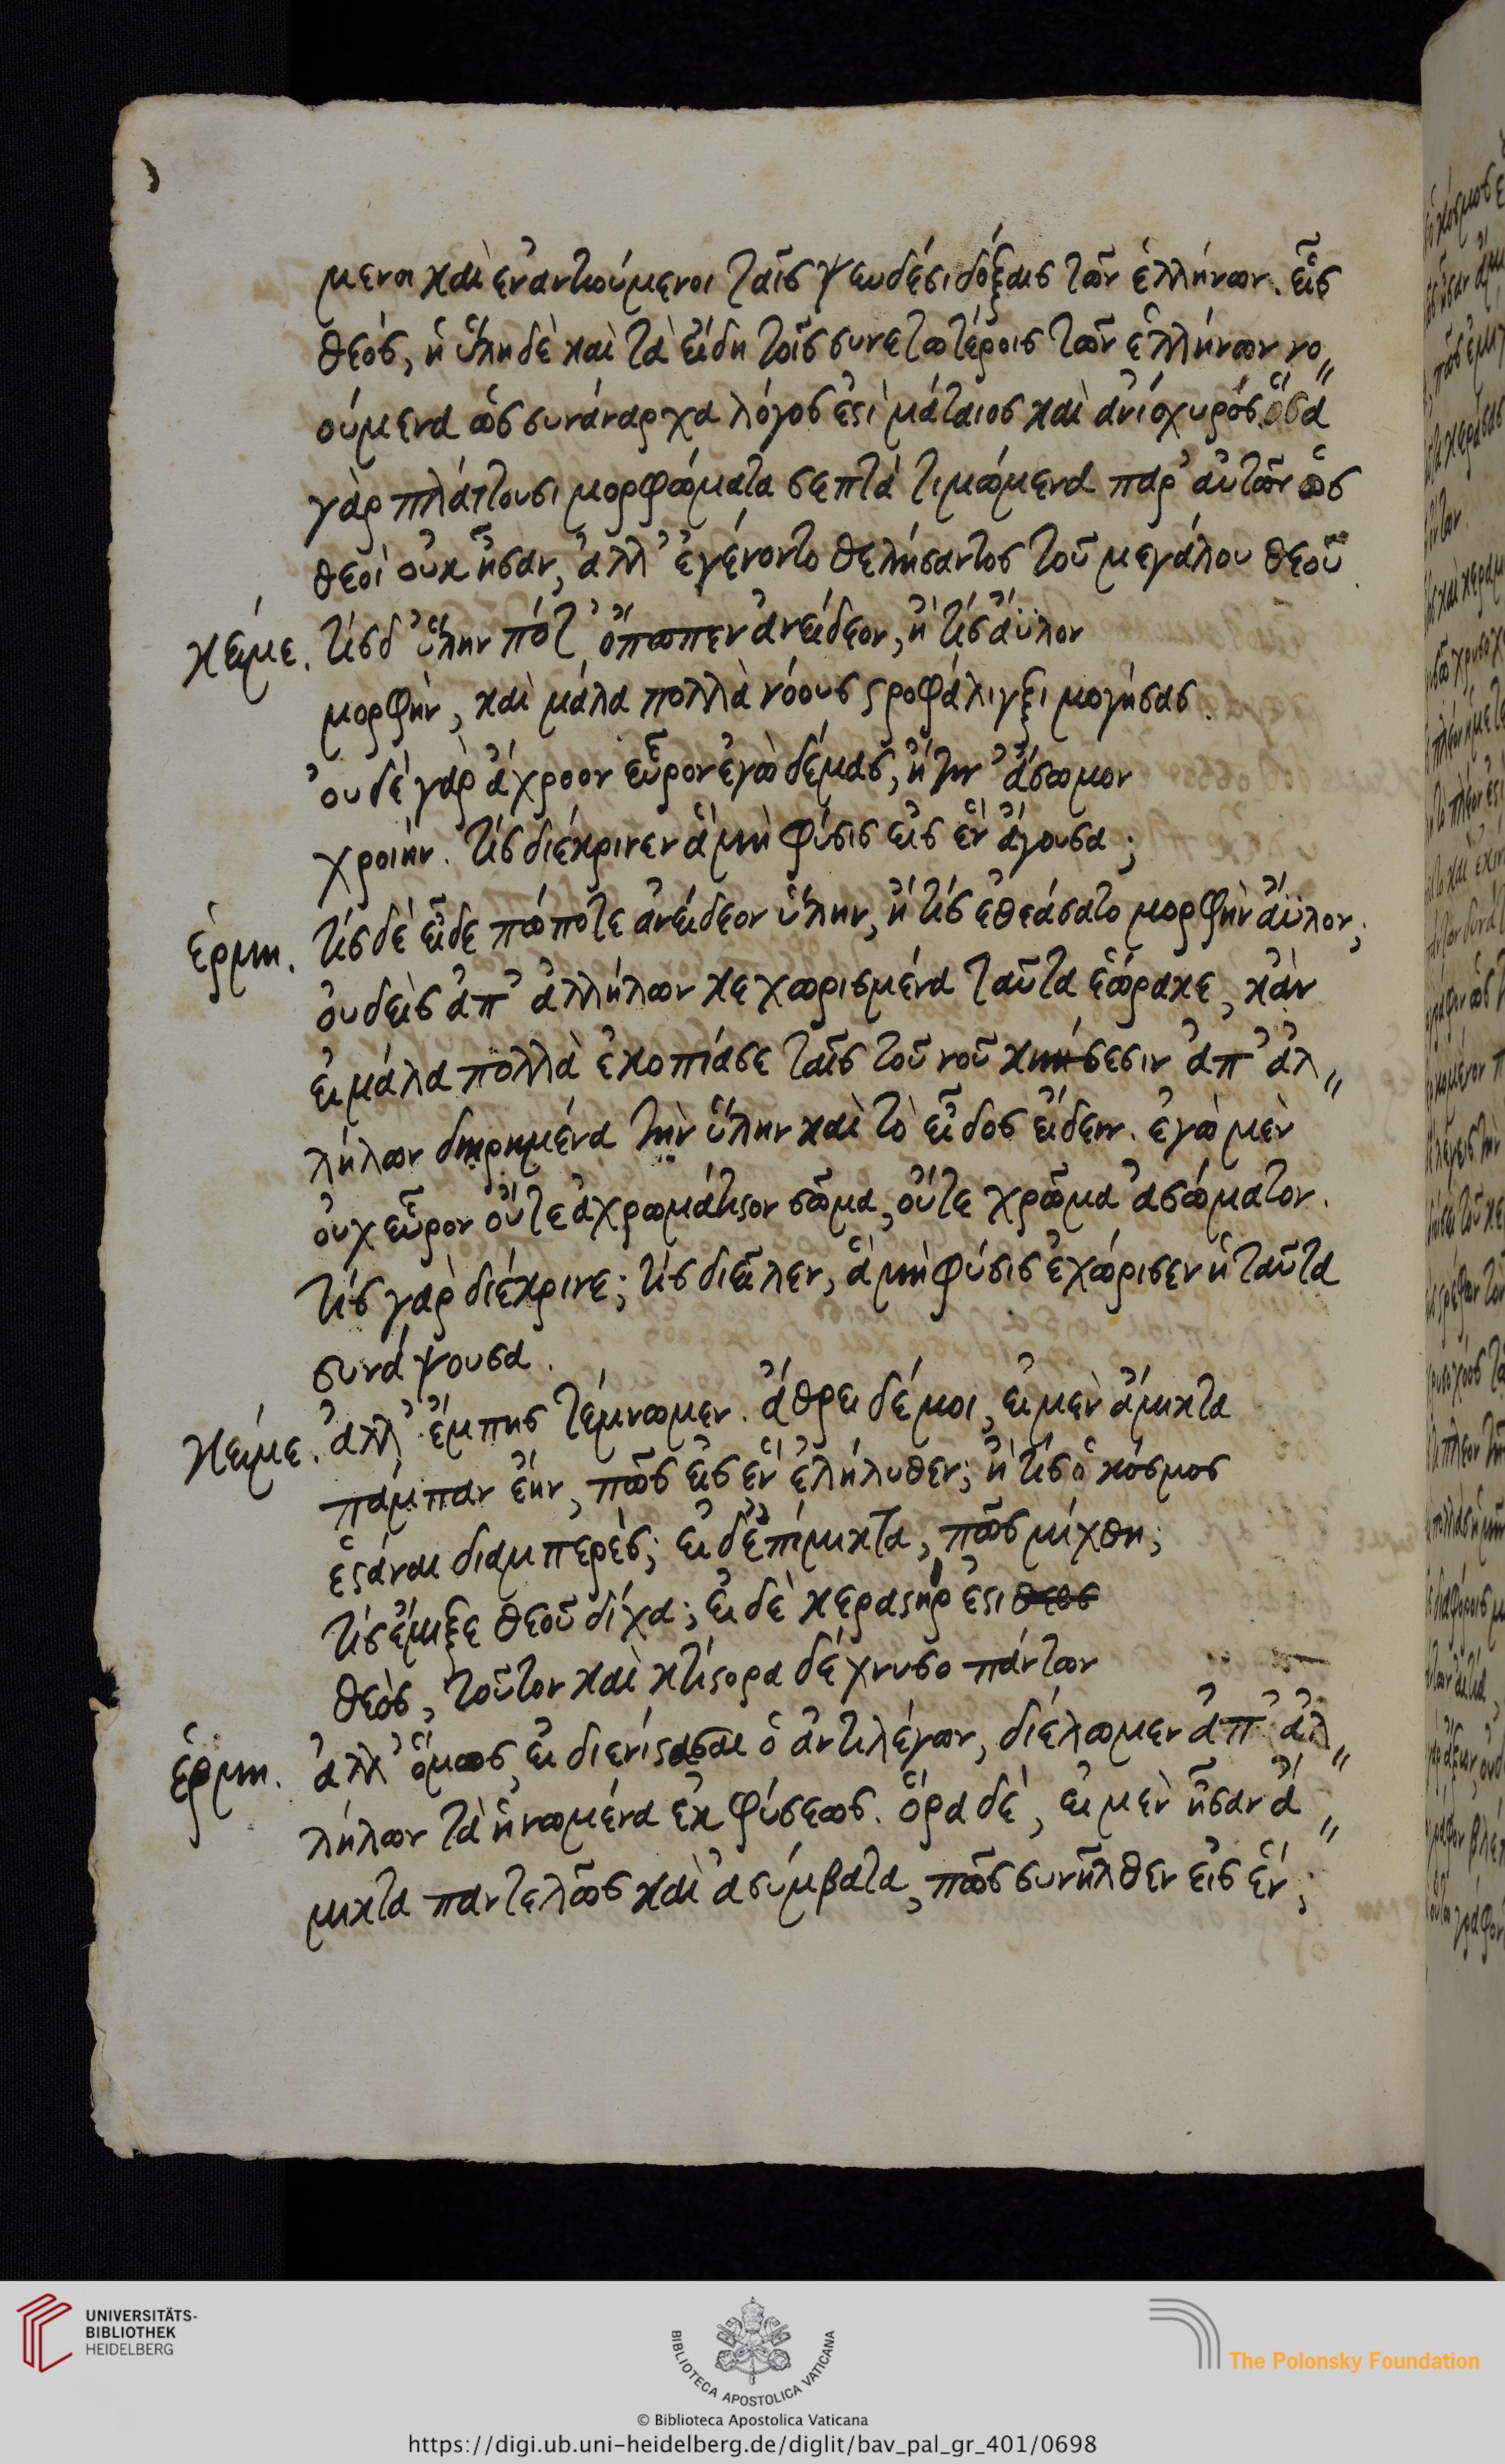 μενοι καὶ ἐναντιούμενοι ταῖς ψευδέσι δόξαις τῶν ἑλλήνων. εἷς
θεός, ἡ ὕλη δὲ καὶ τὰ εἴδη τοῖς συνετωτέροις τῶν ἑλλήνων νο〃
ούμενα ὡς συνάναρχα λόγος ἐστὶ μάταιος καὶ ἀνίσχυρός. ὅσα
γὰρ πλάττουσι μορφώματα σεπτὰ τιμώμενα παρ' αὐτῶν ὡς
θεοὶ οὐκ ἦσαν, ἀλλ' ἐγένοντο θελήσαντος τοῦ μεγάλου θεοῦ.
κείμε. τίς δ' ὕλην πότ' ὄπωπεν ἀνείδεον, ἢ τίς ἄϋλον
μορφὴν, καὶ μάλα πολλὰ νόου στροφάλιγξι μογήσας.
οὐδὲ γὰρ ἄχροον εὗρον ἐγὼ δέμας, ἤ την' ἄσωμον
χροιήν. τίς διέκρινεν ἃ μὴ φύσις εἰς ἓν ἄγουσα;
ἑρμη. τίς δὲ εἶδε πώποτε ἀνείδεον ὕλην, ἢ τίς ἐθεάσατο μορφὴν ἄϋλον;
οὐδεὶς ἀπ' ἀλλήλων κεχωρισμένα ταῦτα ἑώρακε, κἂν
εἰ μάλα πολλὰ ἐκοπίασε ταῖς τοῦ νοῦ κινήσεσιν ἀπ' ἀλ〃
λήλων διῃρημένα τὴν ὕλην καὶ τὸ εἶδος εἰδεῖν. ἐγὼ μὲν
οὐχ εὗρον οὔτε ἀχρωμάτιστον σῶμα, οὔτε χρῶμα ἀσώματον.
τίς γὰρ διέκρινε; τίς διεῖλεν, ἃ μὴ φύσις ἐχώρισεν ἡ ταῦτα
συνάψουσα.
κείμε. ἀλλ' ἔμπης τέμνωμεν. ἄθρει δέ μοι, εἰ μὲν ἄμικτα
πάμπαν ἔην, πῶς εἰς ἓν ἐλήλυθεν; ἢ τίς ὁ κόσμος
ἑστάναι διαμπερὲς; εἰ δ' ἐπίμικτα, πῶς μίχθη;
τίς ἔμιξε θεοῦ δίχα; εἰ δὲ κεραστήρ ἐστι θεος
θεὸς, τοῦτον καὶ κτίστορα δέχνυσο πάντων
ἑρμη. ἀλλ' ὅμως, εἰ διενίσταται ὁ ἀντιλέγων, διέλωμεν ἀπ' ἀλ〃
λήλων τὰ ἡνωμένα ἐκ φύσεως. ὅρα δὲ, εἰ μὲν ἦσαν ἄ〃
μικτα παντελῶς καὶ ἀσύμβατα, πῶς συνῆλθεν εἰς ἕν;
UNIVERSITÄTS-
BIBLIOTHEK
HEIDELBERG
BIBLIOTECA APOSTOLICA VATICANA
The Polonsky Foundation
© Biblioteca Apostolica Vaticana
https://digi.ub.uni-heidelberg.de/diglit/bav_pal_gr_401/0698